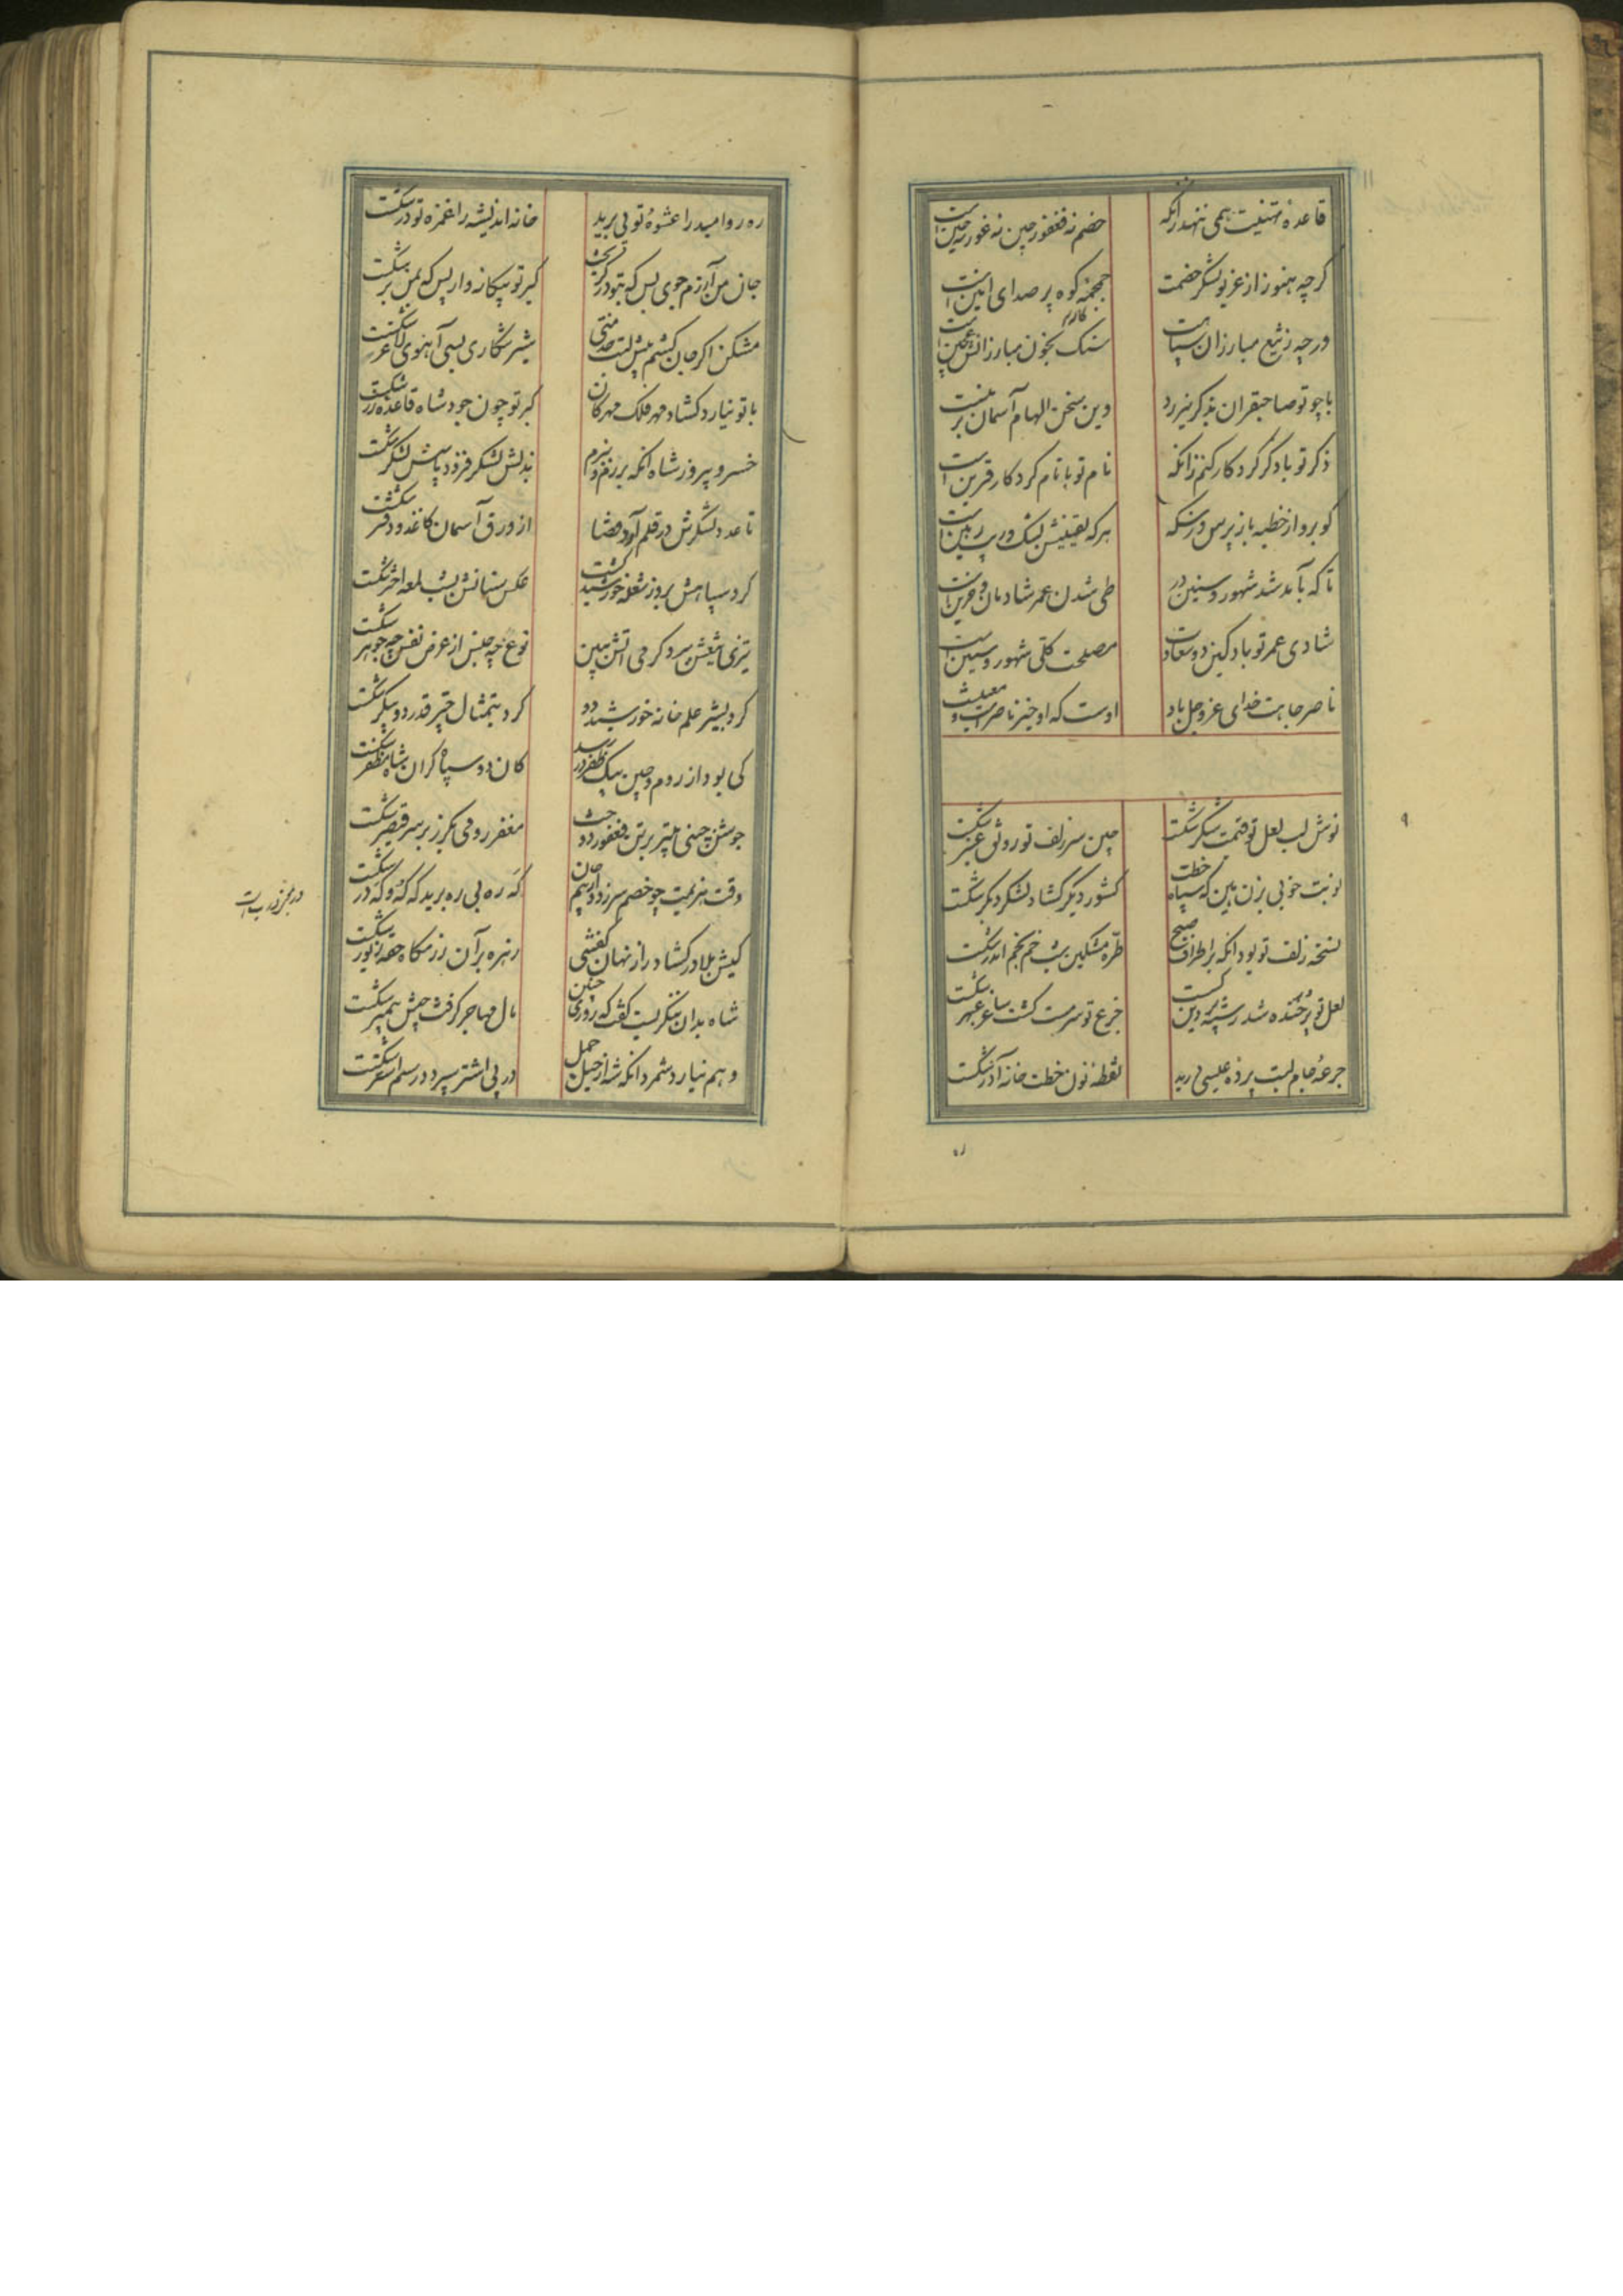 قاعدهٔ تهنیت همی ننهد زانکه خصم نه فغفور چین نه غور چین است
گرچه هنوز از غریو لشکر خصمت جمجمهٔ کوه پر صدای انین است
ورچه ز تیغ مبارزان سپاهت سنگ بخون مبارزانش عجین است
با چو تو صاحبقران بذکر نیرزد وین سخن الهام آسمان برین است
ذکر تو با ذکر کردکار کنم زانکه نام تو با نام کردکار قرین است
کو برو از خطبه باز پرس و ز سکه هرکه یقینش بشک و ریب رهین است
تا که بآمد شد شهور و سنین در طی شدن عمر شادمان و حزین است
شادی عمر تو باد کین دو سعادت مصلحت کلی شهور و سنین است
ناصر جاهت خدای عز و جل باد اوست که او خیر ناصر است و معین است
۹
نوش لب لعل تو قیمت شکر شکست چین سر زلف تو رونق عنبر شکست
نوبت خوبی بزن هین که سپاه خطت کشور دیگر گشاد لشکر دیگر شکست
نسخهٔ زلف تو بود آنکه بر اطراف صبح طرهٔ مشکین شب خم بخم اندر شکست
لعل تو در خنده شد رشتهٔ پروین گسست جزع تو سرمست گشت ساغر عبهر شکست
جرعهٔ جام لبت پردهٔ عیسی درید نقطهٔ نون خطت خانهٔ آذر شکست
ره
رهرو امید را عشوهٔ تو پی برید خانه اندیشه را غمزه تو در شکست
جان من آزرم جوی بس که بتو در گریخت کبر تو بیگانه وار بس که بمن بر شکست
مشکن اگر جان کشم پیش لبت خدمتی شیر شکاری بسی آهوی لاغر شکست
با تو نیارد گشاد مهر فلک مهر کان کبر تو چون جود شاه قاعدهٔ زر شکست
خسرو پیروز شاه آنکه برزم و ببزم بذلش لشکر فزود باسش لشکر شکست
تا عدد لشکرش در قلم آرد قضا از ورق آسمان کاغذ و دفتر شکست
گرد سپاهش بروز شعلهٔ خورشید کشت عکس سنانش بشب لمعه اختر شکست
تیزی تیغش ببرد گرمی آتش ببین نوع چه جنس از عرض نفس چه جوهر شکست
کرد بشیر علم خانه خورشید دو کرد بتمثال چتر قدر دو پیکر شکست
کی بود از روم و چین پیک ظفر در رسد کان دو سپاه گران شاه مظفر شکست
جوشن چینی بتیر بر تن فغفور دوخت مغفر رومی بگرز بر سر قیصر شکست
وقت هزیمت چو خصم سرزده از بیم جان گه ره بی ره برید گه که و گه در شکست
کیش بلا در گشاد راز نهان گفتئی زهره بر آن رزمگاه حقهٔ زیور شکست
شاه بدان ننگریست گفت که روزی چنین مال مهاجر گرفت جیش پیمبر شکست
وهم نیارد شمرد آنکه شه از خیل جمل در پی اشتر سپرد در سم استر شکست